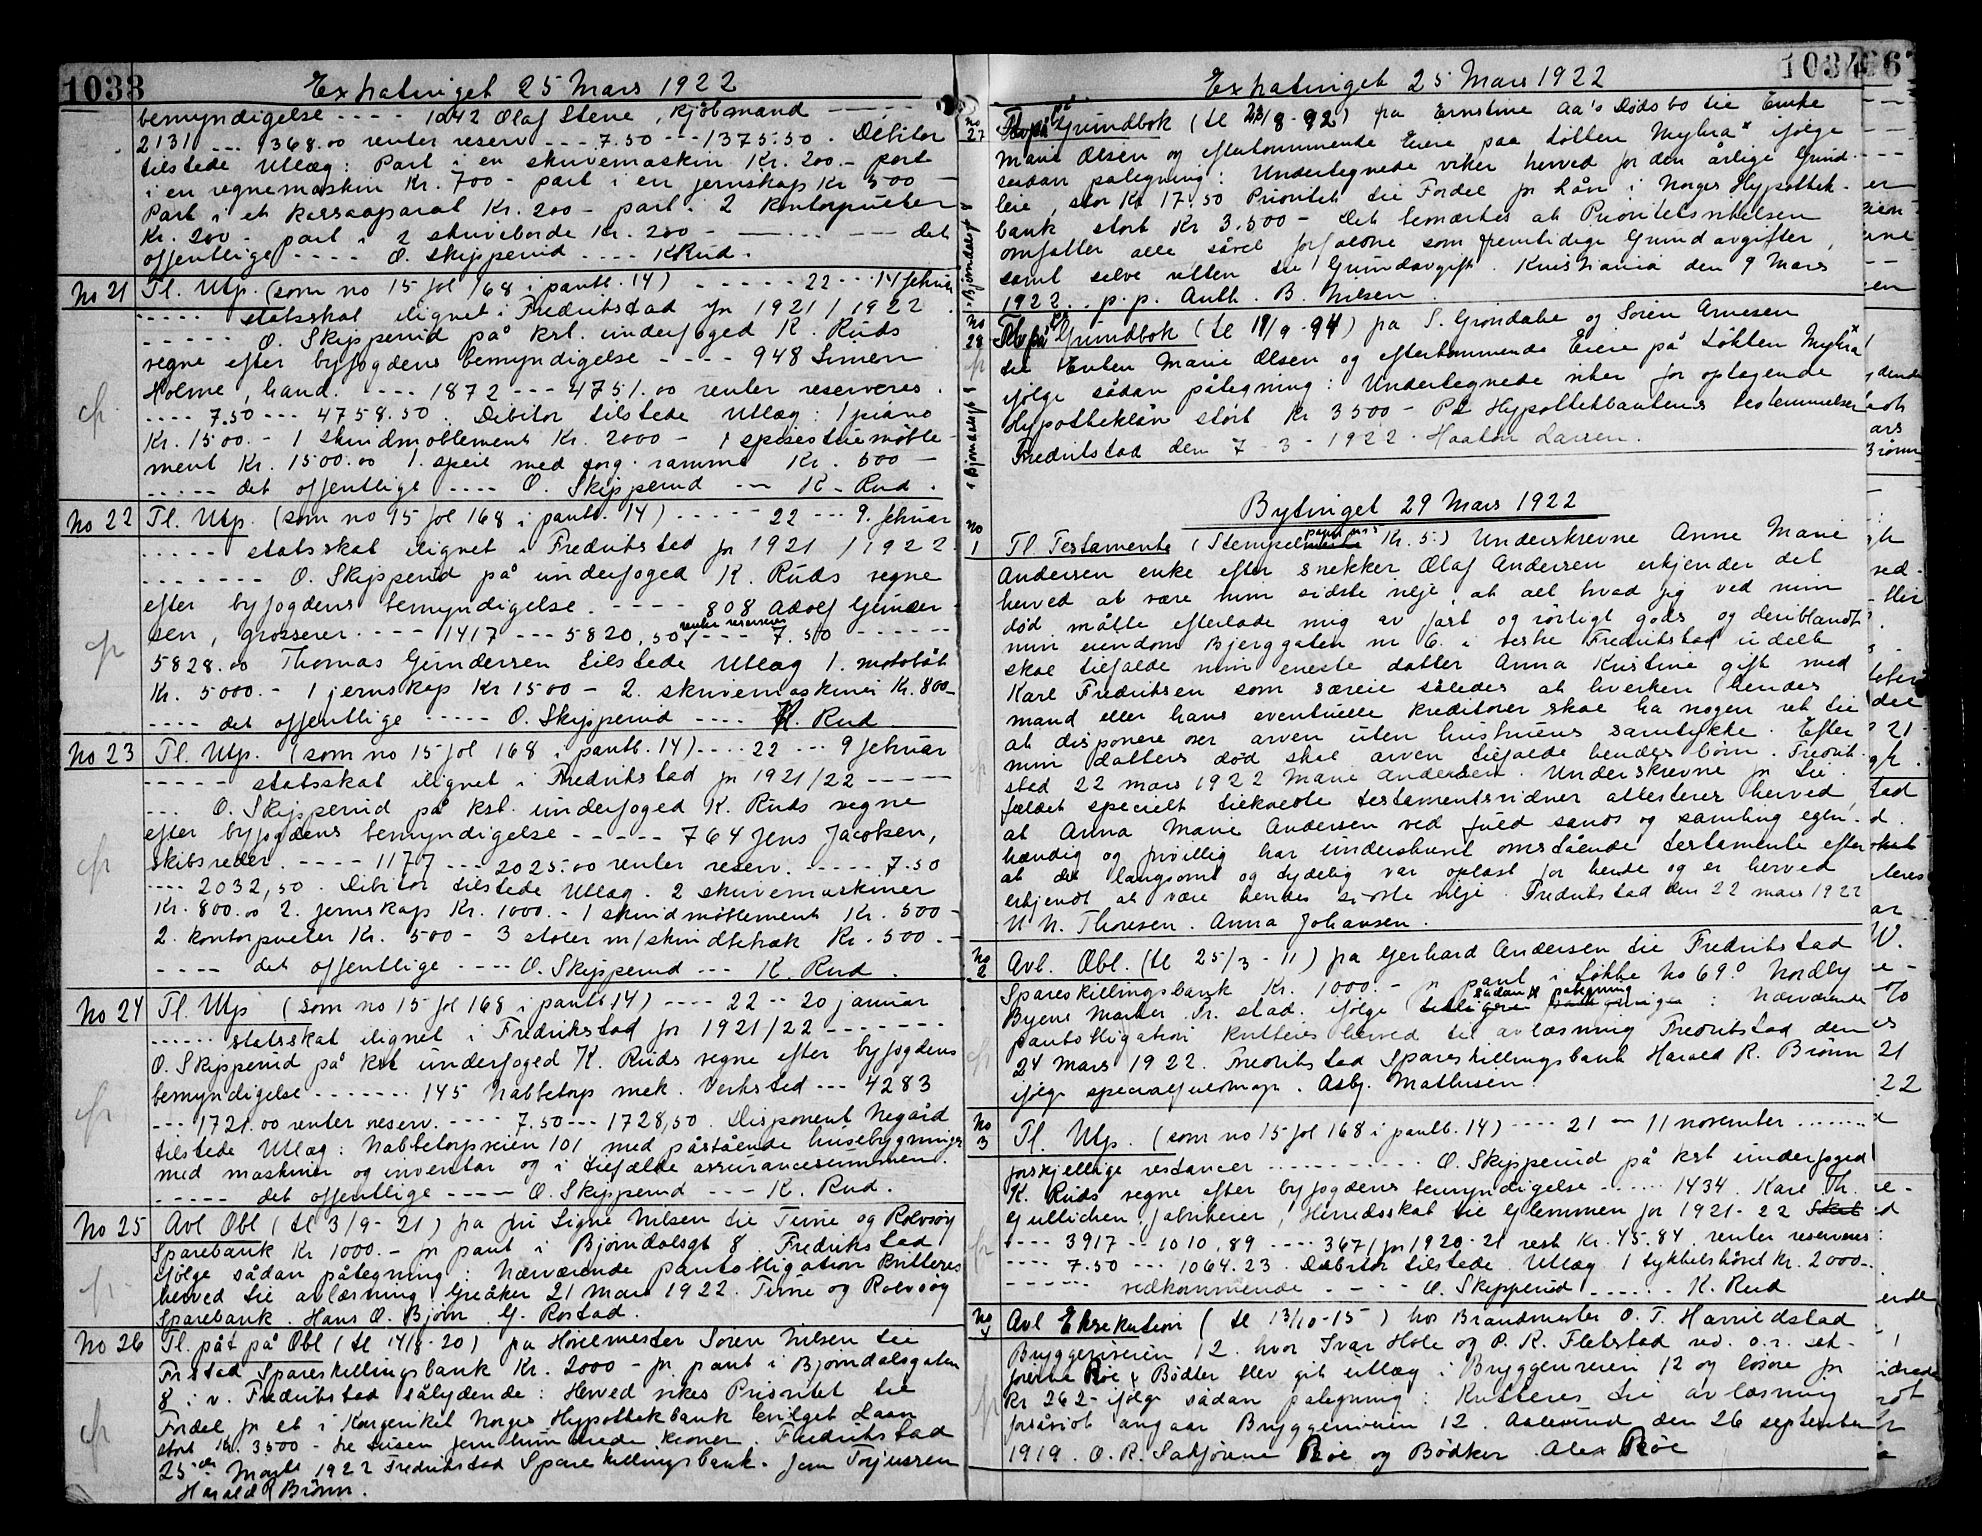 1033
Exkatinget 25 Mars 1922
bemyndigelse - - - - 1042 Olaf Stene, kjöbmand - - - -
2131 - - - 1368.00 renter reserv - - - 7.50 - - - 1375.50. Debitor
tilstede Utlæg: Part i en skrivemaskin Kr. 200.- part
i en regnemaskin Kr. 700 - part i en jernskap Kr 500 -
Part i et kassaapparat Kr. 200 - part i 2 kontorpulter
Kr. 200 - part i 2 skriveborde Kr. 200 - - - - - - det
offentlige - - - - O. Skipperud - - - - K Rud.
No 21 Tl. Utp. (som no 15 fol 168 i pantb. 14) - - - - - - 22 - - - 14 februar
- - - - - statsskat ilignet i Fredrikstad for 1921 / 1922.
- - - - - O. Skipperud på kst. underfoged K. Ruds
regne efter byfogdens bemyndigelse - - - - 948 Simen
Holme, hand. - - - - 1872 - - - 4751.00 renter reserveres.
- - - - 7.50 - - - 4758.50. Debitor tilstede Utlæg: 1 piano
Kr. 1500.- 1 skindmøblement Kr. 2000 - 1 spisestuemøble-
ment Kr. 1500.00 1. speil med forg. ramme Kr. 500 -
- - - - - det offentlige - - - - O. Skipperud - - K. Rud.
No 22 Tl. Utp. (som no 15 fol 168 i pantb. 14) - - - - - 22 - - - 9. februar
- - - - - statsskat ilignet i Fredrikstad for 1921 / 1922.
- - - - - - - O. Skipperud på underfoged K. Ruds regne
efter byfogdens bemyndigelse. - - - - 808 Adolf Gunder-
sen, grosserer. - - - - 1417 - - - 5820,50 renter reserveres - - - - 7.50 - - - - - -
5828.00 Thomas Gundersen tilstede Utlæg 1. motobåt
Kr. 5000.- 1 jernskap Kr 1500 - 2. skrivemaskiner Kr. 800 -
- - - - det offentlige - - - - - O. Skipperud - - - - K. Rud
No 23 Tl. Utp. (som no 15 fol 168 i pantb. 14) - - - - 22 - - - 9 februar
- - - - - statsskat ilignet i Fredrikstad for 1921/22 - - - - -
- - - O. Skipperud på kst. underfoged K. Ruds regne
efter byfogdens bemyndigelse - - - - - 764 Jens Jacobsen,
skibsreder. - - - - 1177 - - - 2025.00 renter reserv. - - - - - 7.50
- - - - 2032,50. Debitor tilstede Utlæg. 2 skrivemaskiner
Kr. 800.00 2. jernskap Kr. 1000.- 1 skindmøblement Kr. 500 -
2. kontorpulter Kr. 500 - 3 stoler m/skindtrkæk Kr. 500. -
- - - - det offentlige - - - - O. Skipperud - - - K. Rud.
No 24 Tl. Utp (som no 15 fol 168 i pantb 14) - - - - 22 - - 20 januar
- - - - - - statsskat ilignet i Fredrikstad for 1921/22 - - - - - - -
O. Skipperud på kst underfoged K. Ruds regne efter byfogdens
bemyndigelse - - - - - - - 145 Nabbetorp mek. Verksted - - - 4283
- - - 1721.00 renter reserv. - - - - 7.50 - - - 1728,50. Disponent Negård
tilstede Utlæg: Nabbetorpveien 101 med påstående husebygninger
med maskiner og inventar og i tilfælde assurancesummen.
- - - - - det offentlige - - - - O. Skipperud - - - K. Rud.
No 25 Avl Obl (tl 3/9 - 21) fra fru Signe Nilsen til Tune og Rolvsöy
Sparebank Kr 1000.- for pant i Bjørndalsgt 8 Fredrikstad
ifølge sådan påtegning: Nærværende pantobligation kvitteres
herved til avlæsning Greåker 21 Mars 1922. Tune og Rolvsöy
Sparebank. Hans O. Bjørn. G. Rostad.
No 26 Tl. påt på Obl (tl 14/8 - 20) fra Høvlemester Sören Nilsen til
Fr.stad Spareskillingsbank Kr. 2000 - for pant i Bjørndalsgaten
8 i v. Fredrikstad sålydende: Herved vikes Prioritet til
Fordel for et i Kongeriket Norges Hypotekbank bevilget Laan
stort Kr. 3500 - tre tusen fem hundrede kroner. Fredrikstad
25de Marts 1922 Fredrikstad Spareskillingsbank. Jens Torjussen
Harald R Brünn.
1034
Exkatinget 25 Mars 1922
No 27 Tl. påt på Grundbok (tl 23/8 - 92) fra Ernstine Aa's Dødsbo til Enke
Marie Olsen og efterkommende Eiere paa Løkken Myhra x ifølge
sådan påtegning: Undertegnede viker herved for den årlige Grund-
leie, stor Kr 17.50 Prioritet til Fordel for Lån i Norges Hypotek-
bank stort Kr 3.500 - Det bemærkes at Prioritetsvikelsen
omfatter alle, såvel forfaldne som fremtidige Grundavgifter,
samt selve retten til Grundavgift. Kristiania den 9 Mars
1922. p.p. Anth. B. Nilsen.
x Bjørndalsgt 8
No 28 Tl. påt på Grundbok (tl 19/9 - 94) fra S. Grøndahl og Sören Arnesen
til Enken Marie Olsen og efterkommende Eiere på Løkken Myhra x
ifølge sådan påtegning: Undertegnede viker for optagende
Hypoteklån stort Kr 3500 - På Hypotekbankens bestemmelser
Fredrikstad den 7 - 3 - 1922. Haakon Larsen.
x Bjørndalsgt 8
Bytinget 29 Mars 1922
No 1 Tl. Testamente (Stempelmerke papir pris Kr. 5.) Underskrevne Anne Marie
Andersen enke efter snekker Olaf Andersen erkjender det
herved at være min sidste vilje, at alt hvad jeg ved min
død måtte efterlade mig av fast og rørligt gods og deriblandt
min eiendom Bjerggaten nr 6. i vestre Fredrikstad udelt
skal tilfalde min eneste datter Anna Kristine gift med
Karl Fredriksen som særeie således at hverken hendes
mand eller hans eventuelle kreditorer skal ha nogen ret til
at disponere over arven uten hustruens samtykke. Efter
min datters død skal arven tilfalde hendes børn. Fredrik-
stad 22 mars 1922 Marie Andersen. Underskrevne for til-
fældet specielt tilkaldte testamentsvidner attesterer herved,
at Anna Marie Andersen ved fuld sands og samling egen-
hændig og frivillig har underskrevet omstående testamente efter
at det langsomt og tydelig var oplæst for hende og er herved
erkjendt at være hendes sidste vilje. Fredrikstad den 22 mars 1922
N. N. Thoresen. Anna Johansen.
No 2 Avl. Obl. (tl 25/3 - 11) fra Gerhard Andersen til Fredrikstad
Spareskillingsbank Kr. 1000.- for pant i Løkke No 69.º Nordby
Byens Marker Fr. stad. ifølge sådan påtegning: Nærværende
pantobligation kvitteres herved til avlæsning Fredrikstad den
24 Mars 1922. Fredrikstad Spareskillingsbank Harald R. Brünn
ifølge specialfuldmagt. Asbj. Mathisen.
No 3 Tl. Utp. (som no 15 fol 168 i pantb. 14) - - - - 21 - 11 november - - - - -
forskjellige restancer - - - - - - - - - - O. Skipperud på kst underfoged
K. Ruds regne efter byfogdens bemyndigelse - - - - - - 1434. Karl Th.
Gullichsen, fabrikeier, Herredsskat til Glemmen for 1921 - 22 Skat
- - - - 3917 - - 1010.89 - - - - 3671 for 1920 - 21 rest Kr. 45.84, renter reserveres
- - - - 7.50 - - - 1064.23. Debitor tilstede. Utlæg. 1 Sykkelshövel kr. 2000 - -
- - - - - - vedkommende - - - O. Skipperud - - - - - - K. Rud
No 4 Avl Eksekution (tl 13/10 - 15) hos Brandmester O. T. Harrildstad
Bryggeriveien 12. hvor Ivar Hole og P. K. Flatstad ved. o.r. sak-
førerne Röe & Bødker blev git utlæg i Bryggeriveien 12 og løsøre for
kr 262 - ifølge sådan påtegning: Kvitteres til avlæsning
forsåvidt angaar Bryggeriveien 12. Aalesund den 26 september
1919. O. R. Sakførerne Röe og Bödker Alex Röe